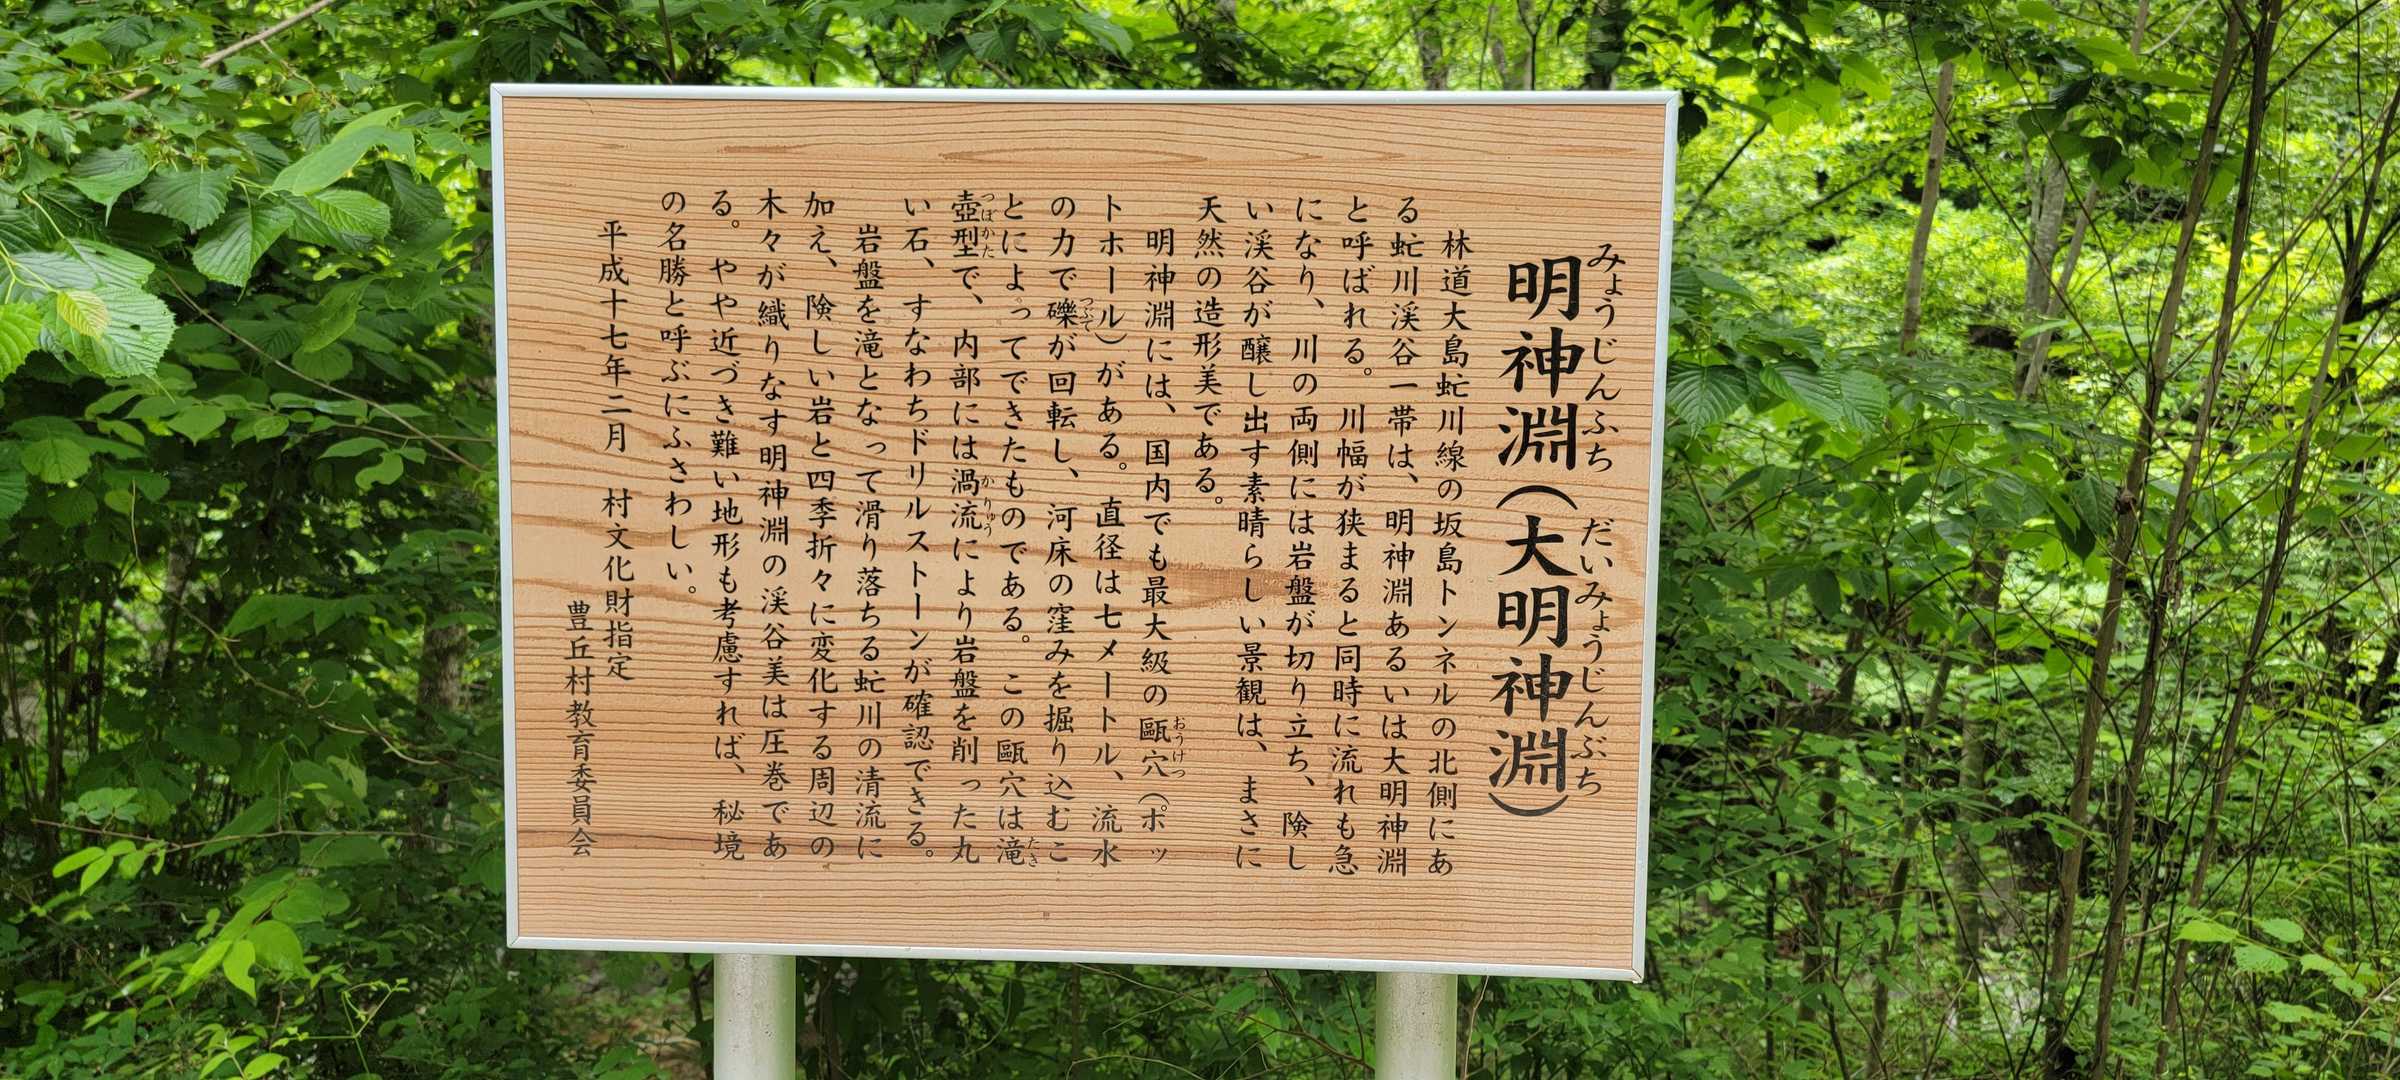 明神淵（大明神淵）
みょうじんふち　だいみょうじんぶち
林道大島虻川線の坂島トンネルの北側にあ
る虻川渓谷一帯は、明神淵あるいは大明神淵
と呼ばれる。川幅が狭まると同時に流れも急
になり、川の両側には岩盤が切り立ち、険し
い渓谷が醸し出す素晴らしい景観は、まさに
天然の造形美である。
明神淵には、国内でも最大級の甌穴（ポッ
おうけつ
トホール）がある。直径は七メートル、流水
の力で礫が回転し、河床の窪みを掘り込むこ
つぶて
とによってできたものである。この甌穴は滝
たき
壺型で、内部には渦流により岩盤を削った丸
つぼかた　かりゅう
い石、すなわちドリルストーンが確認できる。
岩盤を滝となって滑り落ちる虻川の清流に
加え、険しい岩と四季折々に変化する周辺の
木々が織りなす明神淵の渓谷美は圧巻であ
る。やや近づき難い地形も考慮すれば、秘境
の名勝と呼ぶにふさわしい。
平成十七年二月　村文化財指定
豊丘村教育委員会